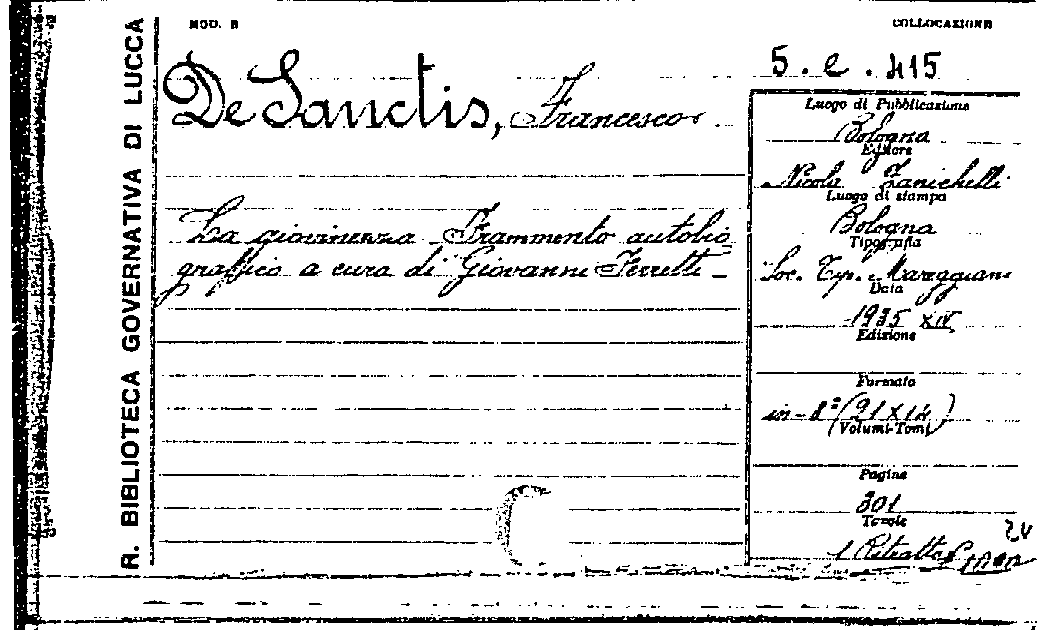 R. BIBLIOTECA GOVERNATIVA DI LUCCA
MOD. B
COLLOCAZIONE
5. e. 415
De Sanctis, Francesco
La giovinezza Frammento autobio
grafico a cura di Giovanni Ferretti
Luogo di Pubblicazione
Bologna
Editore
Nicola Zanichelli
Luogo di stampa
Bologna
Tipografia
Soc. Tip. Mareggiani
Data
1935 XIV
Edizione
Formato
in-8° (21 x 14)
(Volumi-Tomi)
Pagine
301
Tavole
1 Ritratto